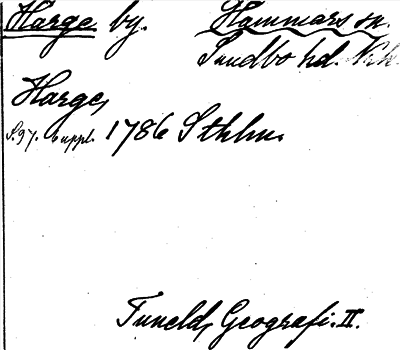 Harge by. Hammars sn.
Sundbo hd. Nrk.
Harge,
S. 97. suppl. 1786 Sthlm.
Tuneld, Geografi. II.